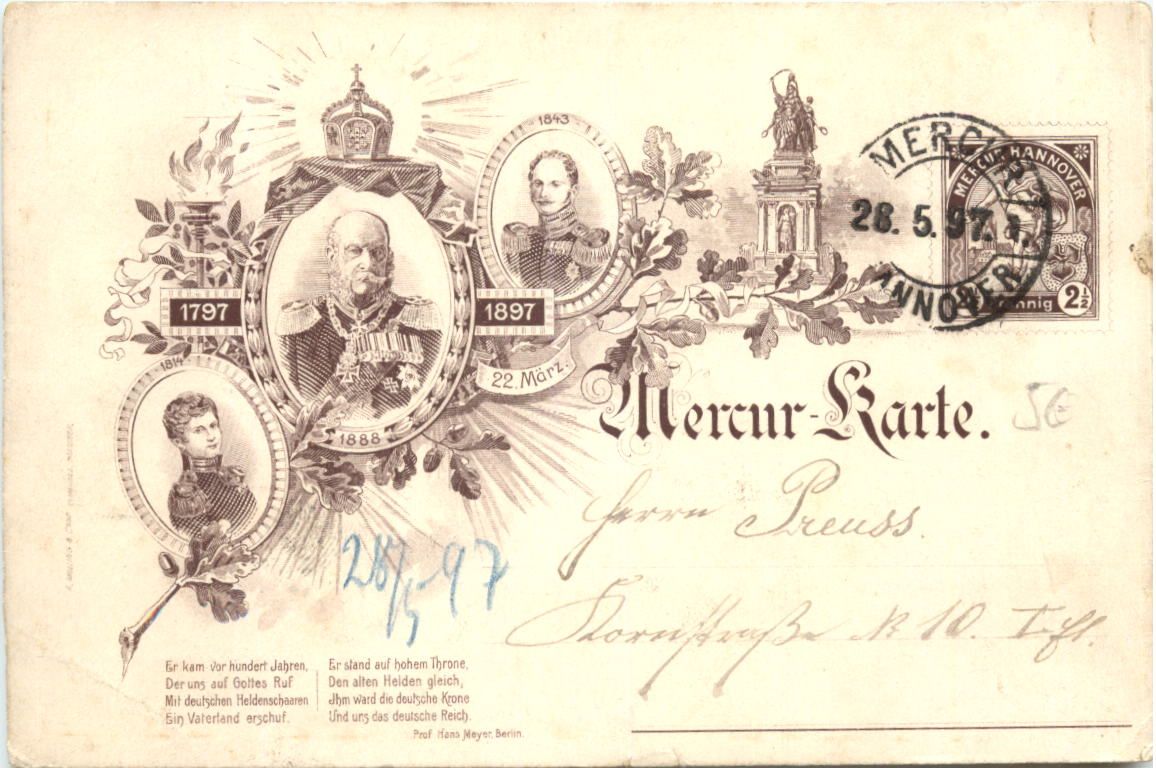 1843
1797
1897
22. März.
1814
1888
MERCUR
28. 5. 97. 
HANNOVER
MERCUR HANNOVER
Pfennig 2½
Mercur-Karte.
5€
Herrn Preuss.
Kornstraße № 10. I. Et.
28/5 97
Er kam vor hundert Jahren,
Der uns auf Gottes Ruf
Mit deutschen Heldenschaaren
Ein Vaterland erschuf.
Er stand auf hohem Throne,
Den alten Helden gleich,
Jhm ward die deutsche Krone
Und uns das deutsche Reich.
Prof. Hans Meyer, Berlin.